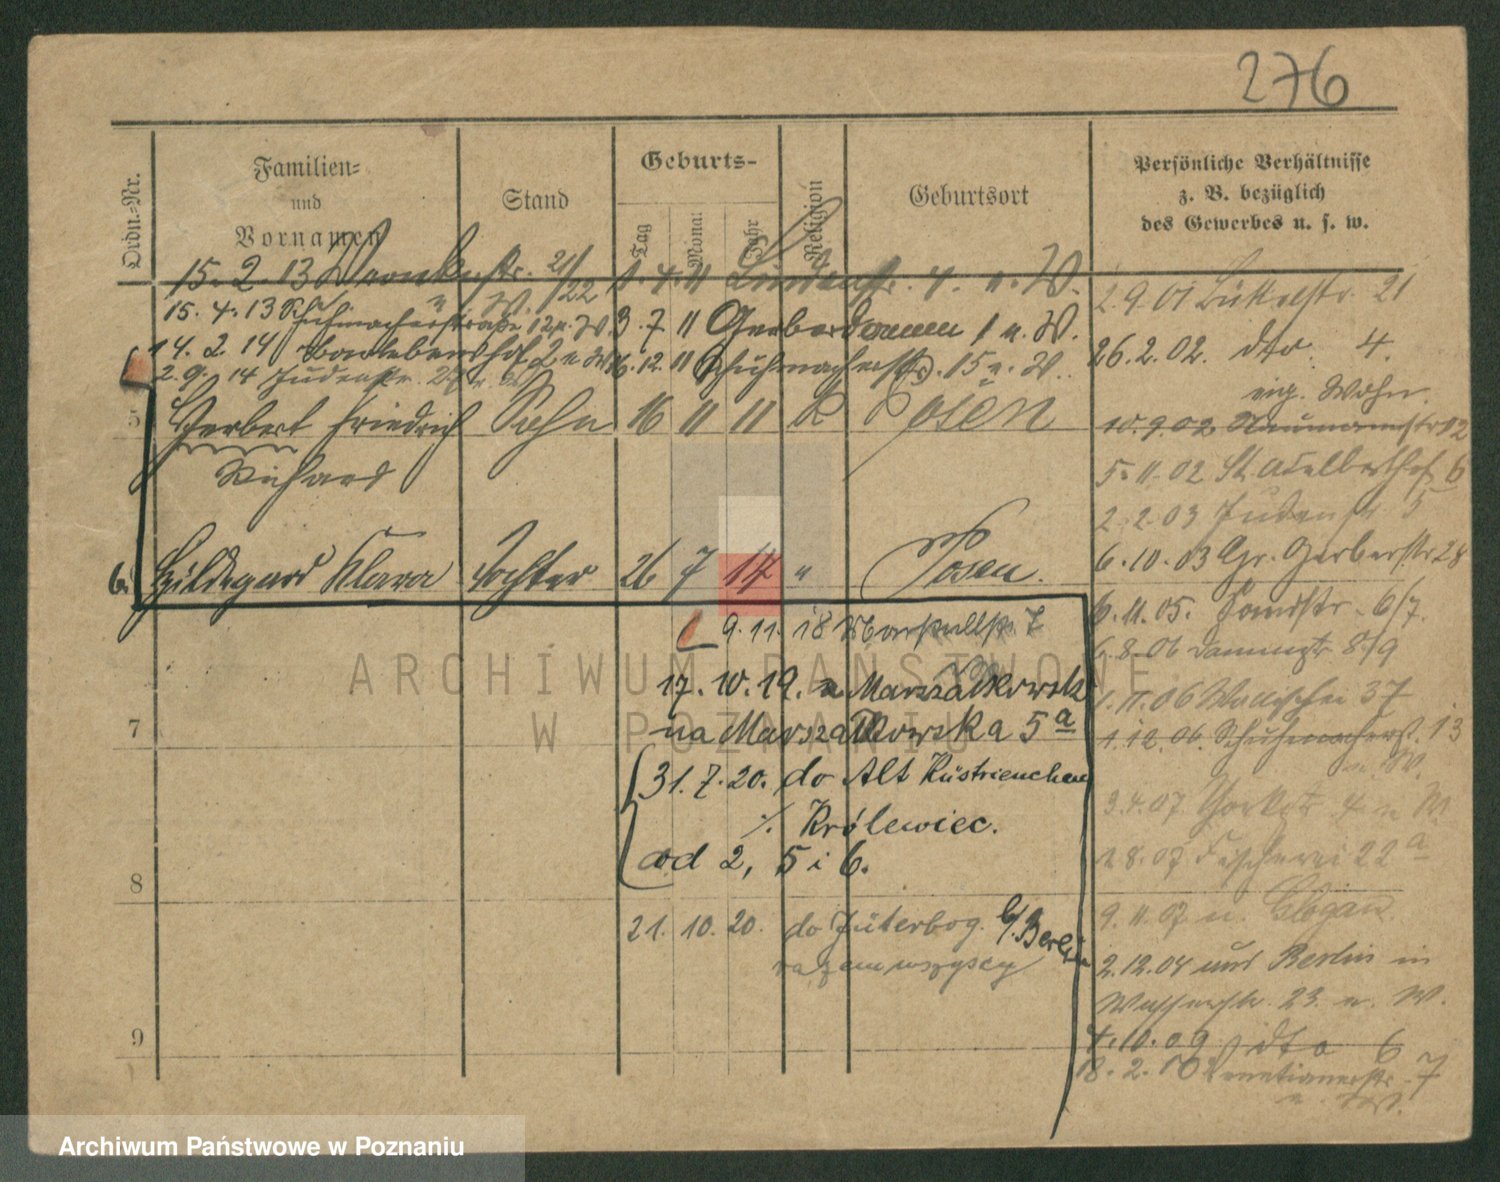 276
Ordn.-Nr.
Familien-
und
Vornamen
Stand
Geburts-
Tag
Monat
Jahr
Religion
Geburtsort
Persönliche Verhältnisse
z. B. bezüglich
des Gewerbes u. s. w.
15. 2. 13 Wronkerstr. 21/22
1. 4. 11 Lindenstr. 4. u. W.
15. 4. 13 Schuhmacherstraße 12 u. W
3. 7. 11 Gerberdamm 1 u. W.
14. 2. 14
2 u. W
16. 12. 11 Schuhmacherstr. 15 u. W.
2. 9. 14 Judenstr.
5
Herbert Friedrich Sohn 16 11 11 K Posen
Richard
6. Hildegard Klara Tochter 26 7 14 " Posen.
9. 11. 18 Marstallstr. 7
17. 10. 19. z Marszałkowska
na Marszałkowska 5a
7
31. 7. 20. do Alt Küstrienchen
Królewiec.
od 2, 5 i 6.
8
21. 10. 20. do Jüterbog. b/Berlin
razem wszyscy
9
2. 9. 01 Büttelstr. 21
26. 2. 02. dto. 4.
eig. Wohn.
10. 9. 02 Naumannstr 12
5. 11. 02 St. Adalberthof 6
2. 2. 03 Judenstr 5
6. 10. 03 Gr. Gerberstr 28
6. 11. 05. Sandstr. 6/7.
6. 8. 06 Dammstr 8/9
1. 11. 06 Wallischei 37
1. 12. 06. Schuhmacherst. 13
u. W.
3. 4. 07. 4 u W
1. 8. 07 Fischerei 22a
9. 11. 07 n. Glogau.
2. 12. 04 aus Berlin in
Wasserstr. 23. u. W.
4. 10. 09 dto 6
18. 2. 10 Venetianerstr. 7
u. W.
ARCHIWUM PAŃSTWOWE
W POZNANIU
Archiwum Państwowe w Poznaniu